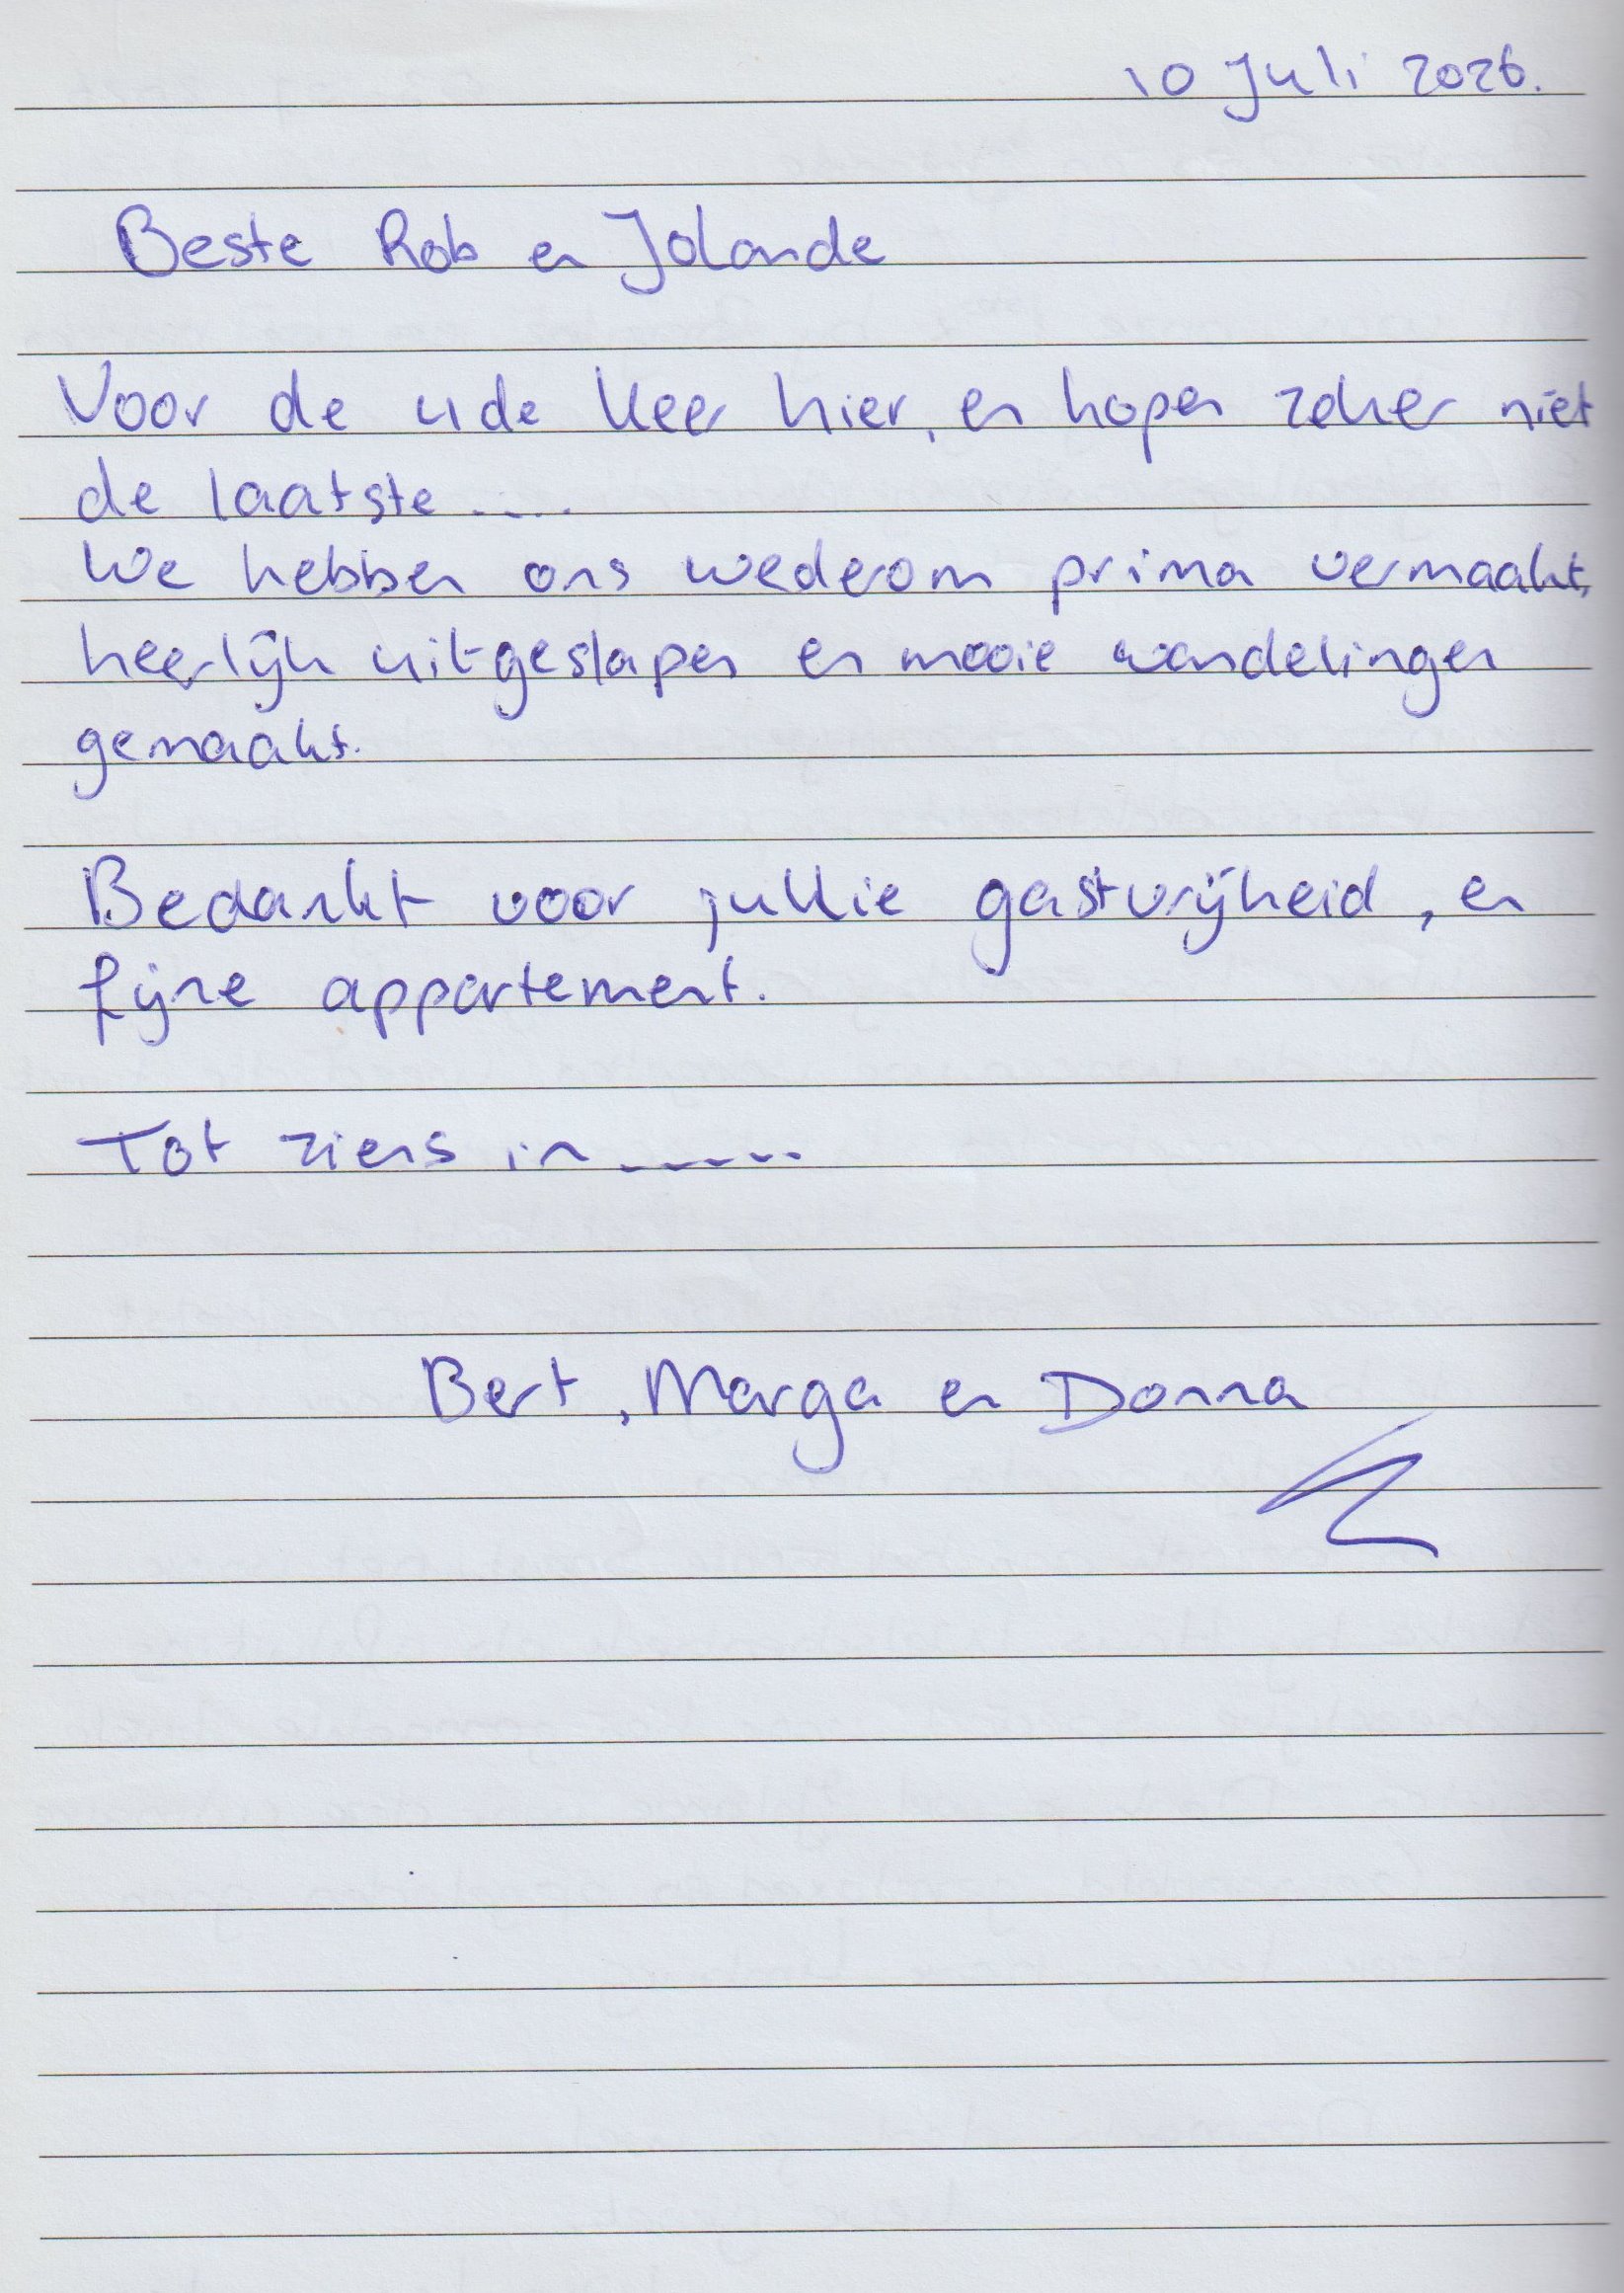 10 Juli 2026.
Beste Rob en Jolande
Voor de 4de keer hier, en hopen zeker niet
de laatste ....
We hebben ons wederom prima vermaakt,
heerlijk uitgeslapen en mooie wandelingen
gemaakt.
Bedankt voor jullie gastvrijheid, en
fijne appartement.
Tot ziens in ......
Bert, Marga en Donna